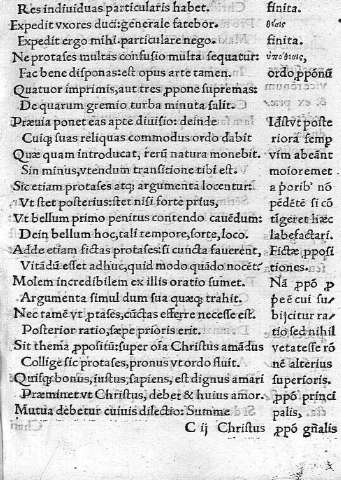 Res indiuiduas particularis habet. finita.
Expedit vxores duci: generale fatebor. θέσις
Expedit ergo mihi. particulare nego. finita.
Ne protases multas confusio multa sequatur: ὑπόθεσις,
Fac bene disponas: est opus arte tamen. ordo ꝓponū
Quatuor imprimis, aut tres ꝓpone supremas:
De quarum gremio turba minuta salit.
Præuia ponet eas apte diuisio: deinde Id st̄vt poste
Cuiqꝫ suas reliquas commodus ordo dabit riora semp
Quæ quam introducat, rerū natura monebit. vim abeānt
Sin minus, vtendum transitione tibi est. maiorem et
Sic etiam protases atqꝫ argumenta locentur: a ꝓorib' nō
Vt stet posterius: stet nisi forte prius, pēdētē si cō
Vt bellum primo penitus contendo cauēdum: tigeret hæc
Dein bellum hoc, tali tempore, forte, loco. labefactari.
Adde etiam fictas protases: si cuncta fauerent, Fictæ ꝓposi
Vitādū esset adhuc, quid modo quādo nocēt? tiones.
Molem incredibilem ex illis oratio sumet. Nā ꝓpō ꝓ
Argumenta simul dum sua quæqꝫ trahit. peē cui su
Nec tamē vt ꝓtases, cūctas efferre necesse est. bijcitur ra
Posterior ratio, sæpe prioris erit. tio sed nihil
Sit thema ꝓpositū: super oīa Christus amādus vetat esse rō
Collige sic protases, pronus vt ordo fluit. nē alterius
Quisqꝫ bonus, iustus, sapiens, est dignus amari superioris.
Præminet vt Christus, debet & huius amor. ꝓpō princi
Mutua debetur cuiuis dilectio: Summe palis,
C ij Christus ꝓpō gñalis